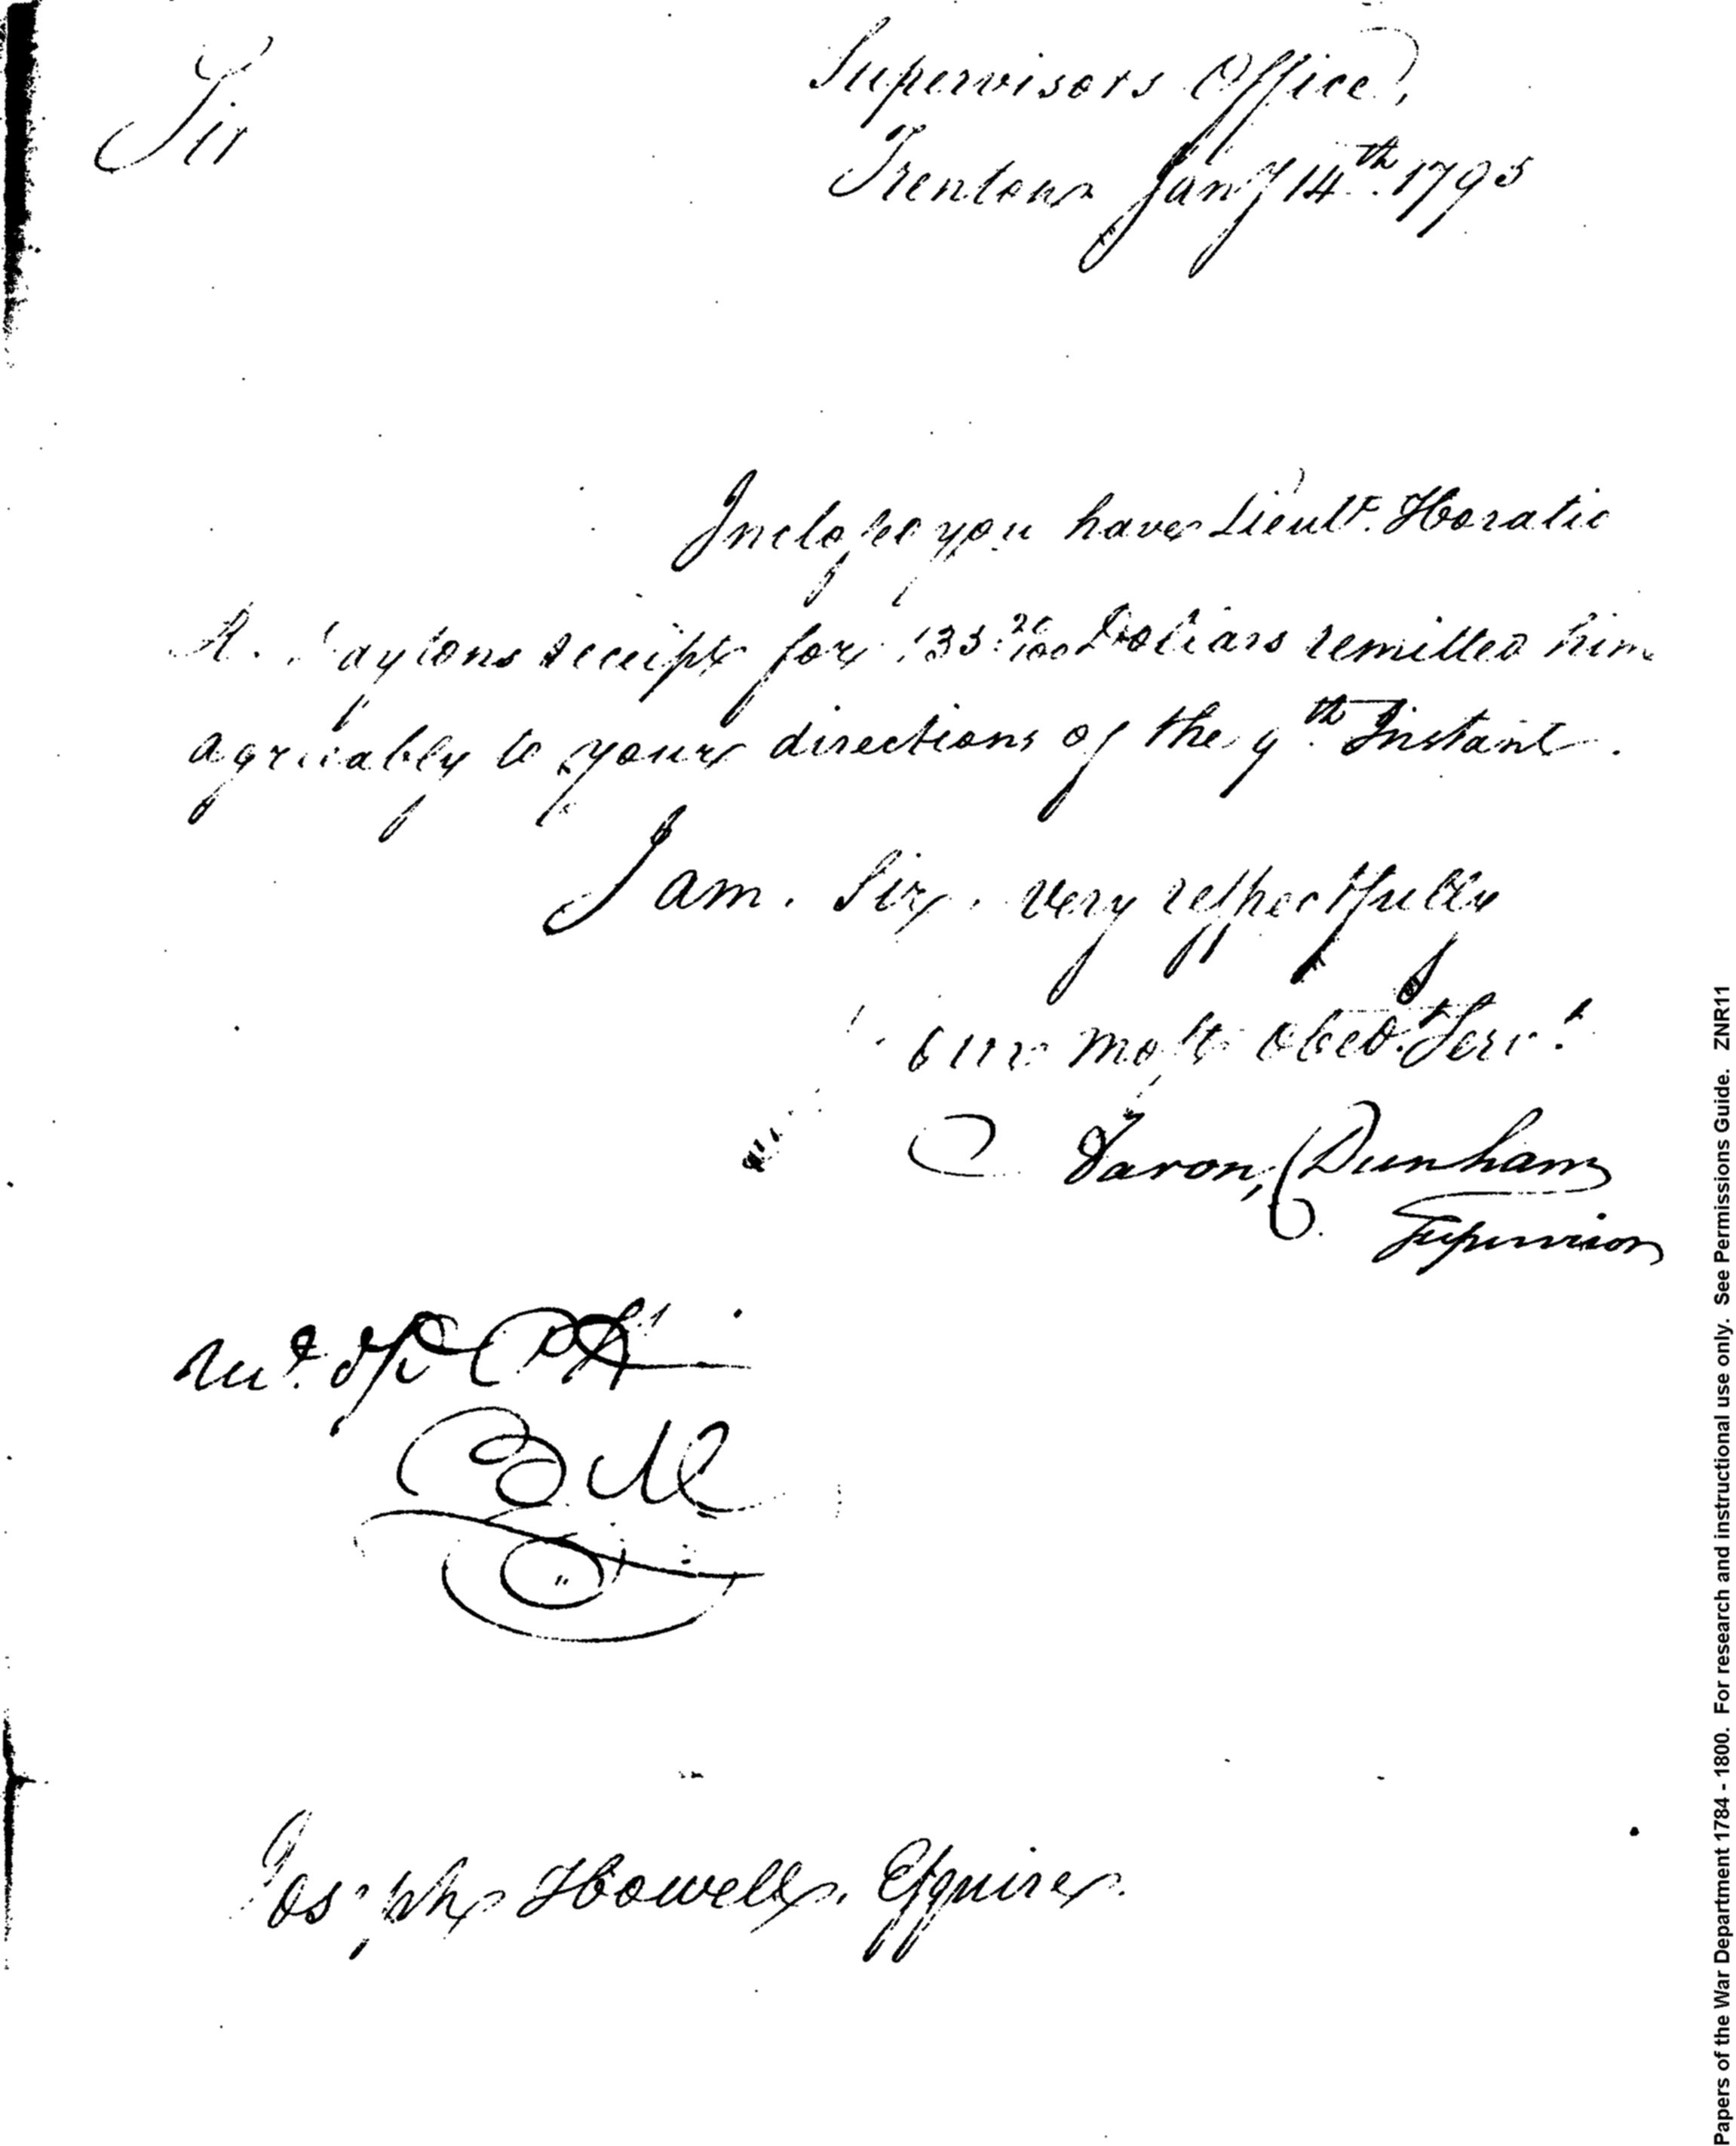 Sir
Supervisors Office,
Trenton Jany 14th. 1795
Inclosed you have Lieutt. Horatio
R. Daytons receipt for 133. 26/100 Dollars remitted him
agreeably to your directions of the 9th. Instant.
I am. Sir. very respectfully
Your most obed. Servt.
Aaron, Dunham
Supervisor
Joseph Howell, Esquire.
Papers of the War Department 1784 - 1800. For research and instructional use only. See Permissions Guide. ZNR11